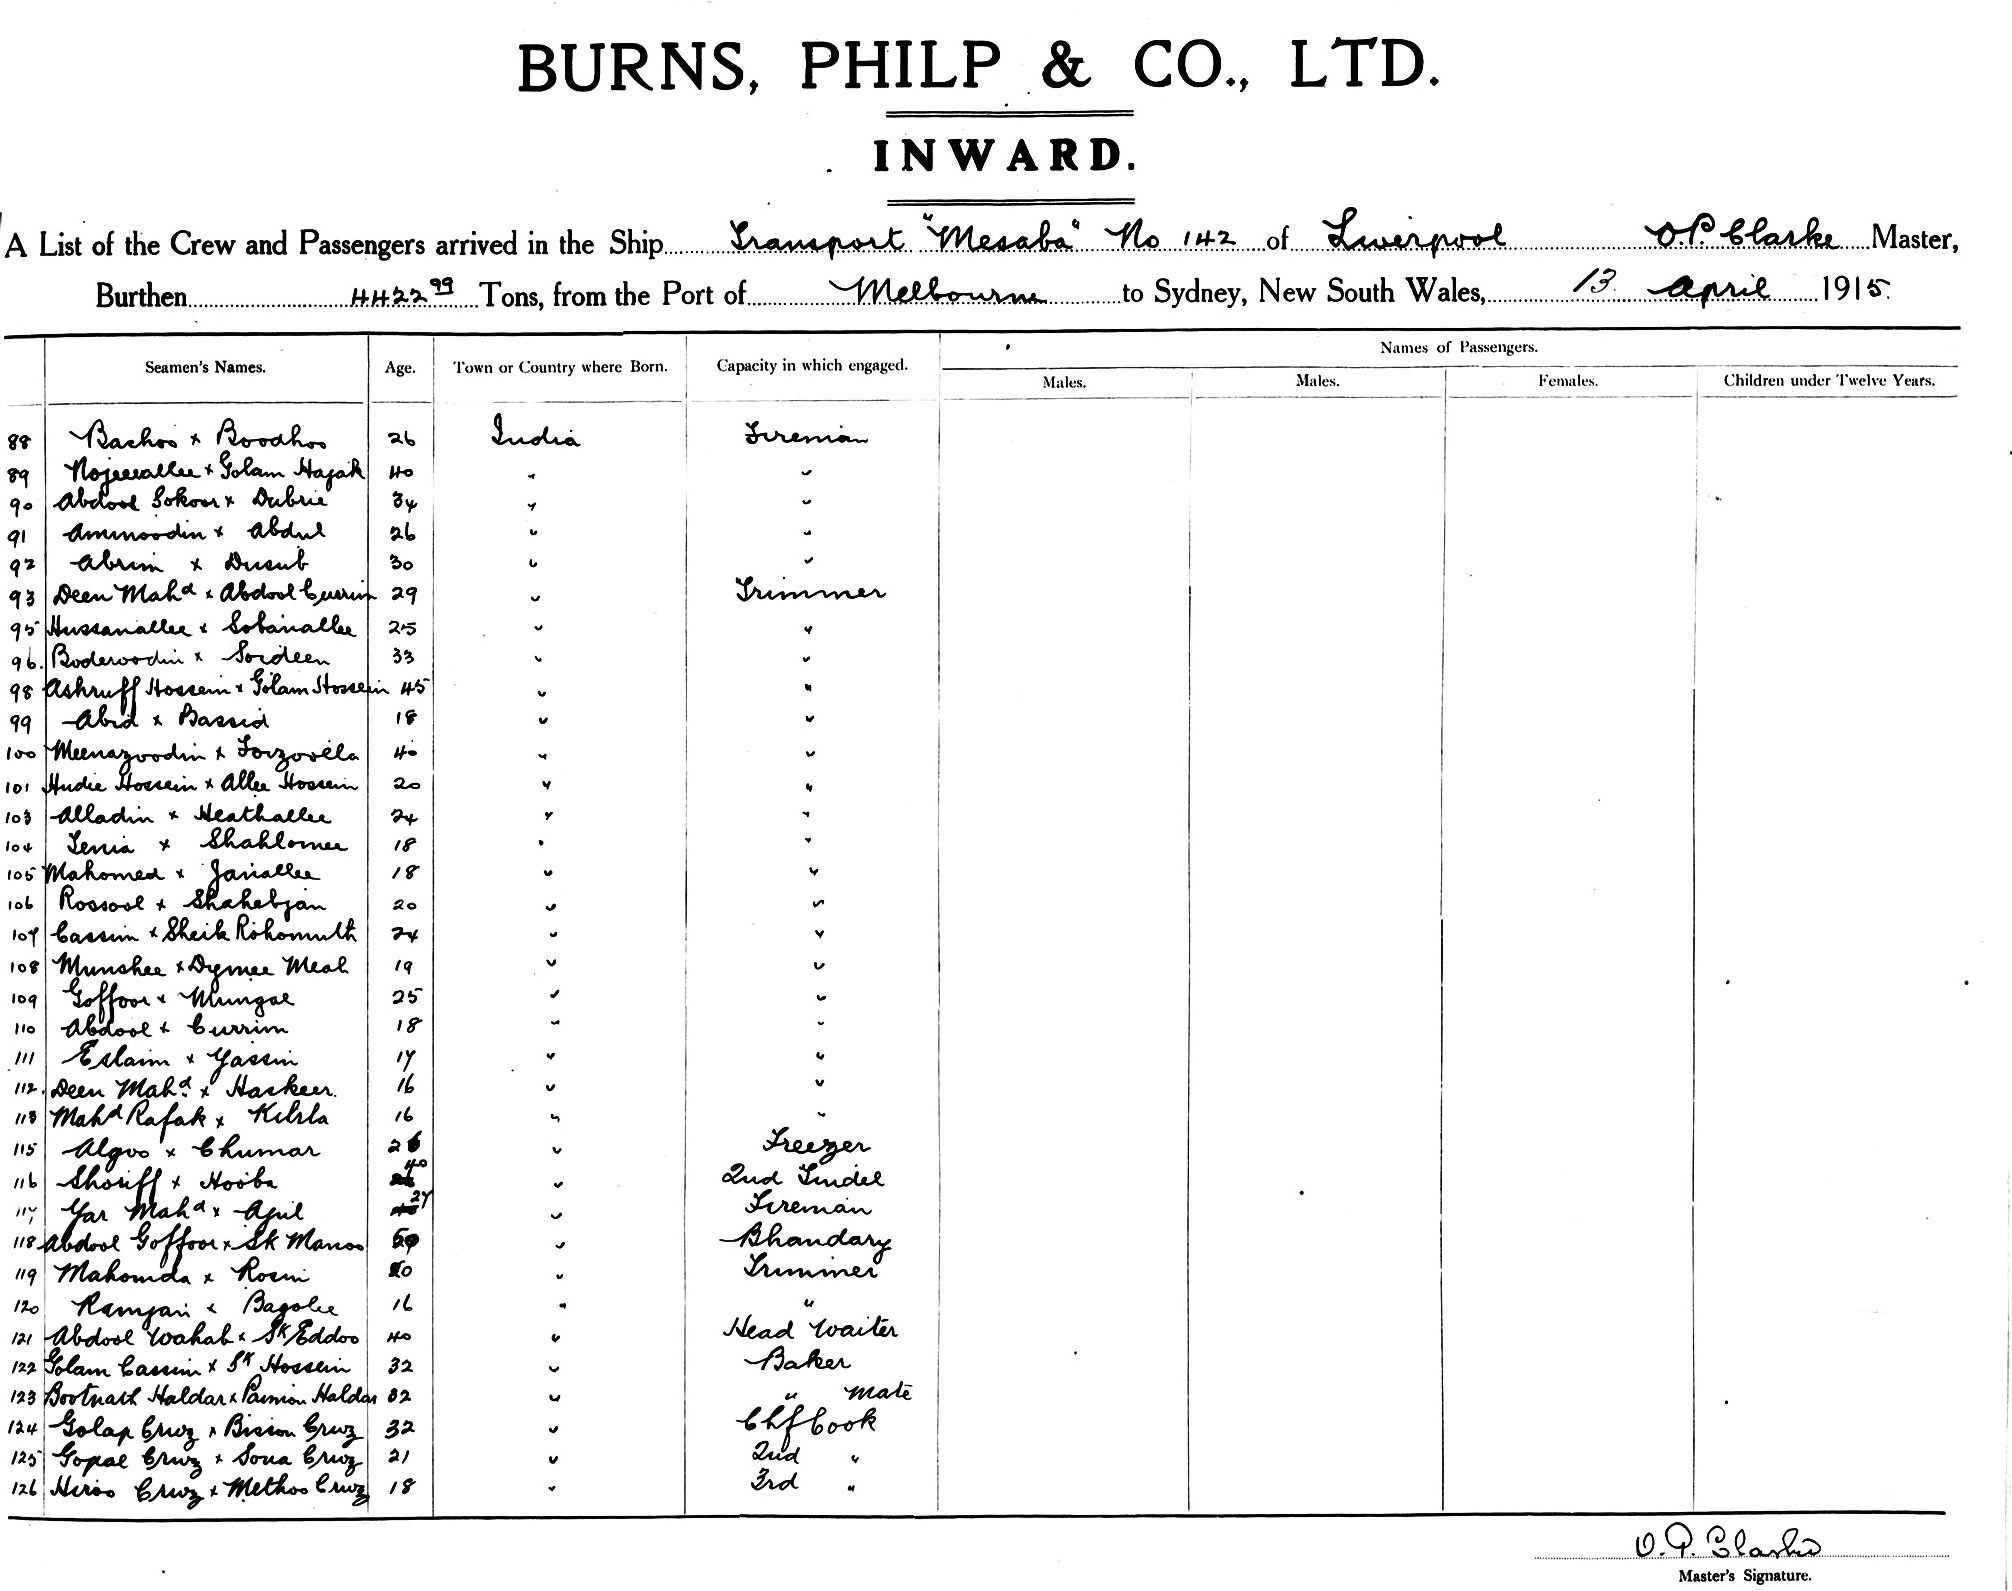 BURNS, PHILP & CO., LTD.
INWARD.
A List of the Crew and Passengers arrived in the Ship Transport "Mesaba" No 142 of Liverpool O.P. Clarke Master,
Burthen 4422 99 Tons, from the Port of Melbourne to Sydney, New South Wales, 13 April 1915.
Names of Passengers.
Seamen's Names. Age. Town or Country where Born. Capacity in which engaged. Males. Males. Females. Children under Twelve Years.
88 Bachoo x Boodhoo 26 India Fireman
89 x Golam 40 " "
90 Abdool Sokoor x Dubrie 34 " "
91 Ammoodin x Abdul 26 " "
92 Abrim x Dusub 30 " "
93 Deen Mahd x Abdool Currim 29 " Trimmer
95 Hussanallee x Sobanallee 25 " "
96. Boderoodin x Sordeen 33 " "
98 Ashruff Hossein x Golam Hossein 45 " "
99 Abid x Bassid 18 " "
100 Meenazoodin x 40 " "
101 Hudie Hossein x Allee Hossein 20 " "
103 Alladin x Heathallee 24 " "
104 x Shahlomee 18 " "
105 Mahomed x Janallee 18 " "
106 Rossool x Shahebjan 20 " "
107 Cassim x Sheik Rohomuth 24 " "
108 Munshee x Dymee Meah 19 " "
109 Goffoor x Mungal 25 " "
110 Abdool x Currim 18 " "
111 Eslaim x Yassin 17 " "
112. Deen Mahd x Haskeer. 16 " "
113 Mahd Rafak x 16 " "
115 Algoo x Chumar 26 " Freezer
116 Shoriff x Hooba 40 " 2nd Tindel
117 Yar Mahd x 27 " Fireman
118 Abdool Goffoor x Sk Manoo " Bhandary
119 Mahomda x Rosin " Trimmer
120 Ramjan x Bagolee 16 " "
121 Abdool Wahab x Sk Eddoo 40 " Head Waiter
122 Golam Cassim x Sk Hossein 32 " Baker
123 Bootnath Haldar x Haldar 32 " " Mate
124 Golap Cruz x Bisson Cruz 32 " Chf Cook
125 Gopal Cruz x Sona Cruz 21 " 2nd "
126 Hiroo Cruz x Methoo Cruz 18 " 3rd "
O.P. Clarke
Master's Signature.